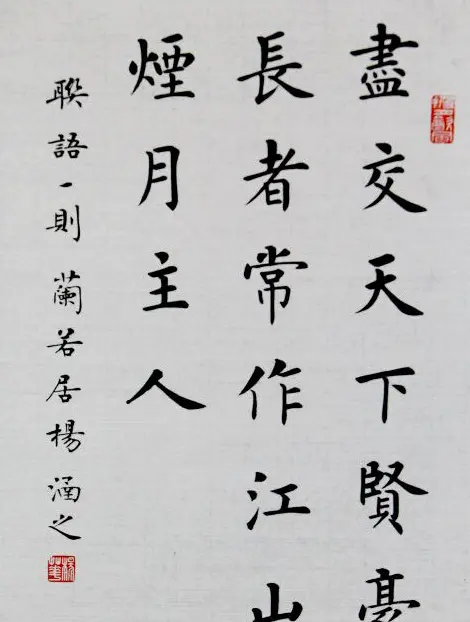 盡交天下賢豪
長者常作江山
煙月主人
聯語一則 蘭若居楊涵之